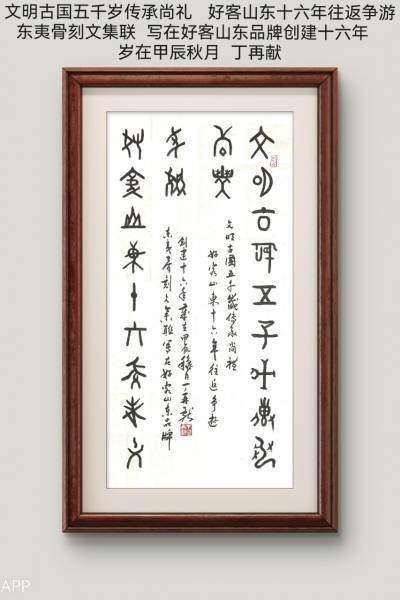 文明古国五千岁传承尚礼 好客山东十六年往返争游
东夷骨刻文集联 写在好客山东品牌创建十六年
岁在甲辰秋月 丁再献
文明古國五千歲傳承
尚禮
文明古國五千歲傳承尚禮
好客山東十六年往返爭遊
好客山東十六年往返
爭遊
東夷骨刻文集联寫在好客山东品牌
創建十六年歲在甲辰穐月丁再献
APP